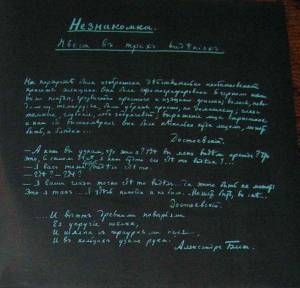 Незнакомка.
Пьеса въ трехъ видѣніяхъ
На портретѣ была изображена дѣйствительно необыкновенной
красоты женщина. Она была сфотографирована въ черномъ шелко-
вомъ платьѣ, чрезвычайно простого и изящнаго фасона; волосы, пови-
димому, темнорусые, были убраны просто, по домашнему; глаза
темные, глубокіе, лобъ задумчивый; выраженіе лица страстное
и какъ бы высокомѣрное. Она была нѣсколько худа лицомъ, можетъ
быть, и блѣдна...
Достоевскій.
— А какъ вы узнали, что это я? Гдѣ вы меня видѣли прежде? Что
это, въ самомъ дѣлѣ, я какъ будто его гдѣ-то видѣла?
— Я васъ тоже будто видѣлъ гдѣ-то.
— Гдѣ? — Гдѣ?
— Я ваши глаза точно гдѣ-то видѣлъ... да этого быть не можетъ!
Это я такъ... Я здѣсь никогда и не былъ. Можетъ быть, во снѣ...
Достоевскій.
...И вѣютъ древними повѣрьями
Ея упругіе шелка,
И шляпа съ траурными перьями,
И въ кольцахъ узкая рука.
Александръ Блокъ.